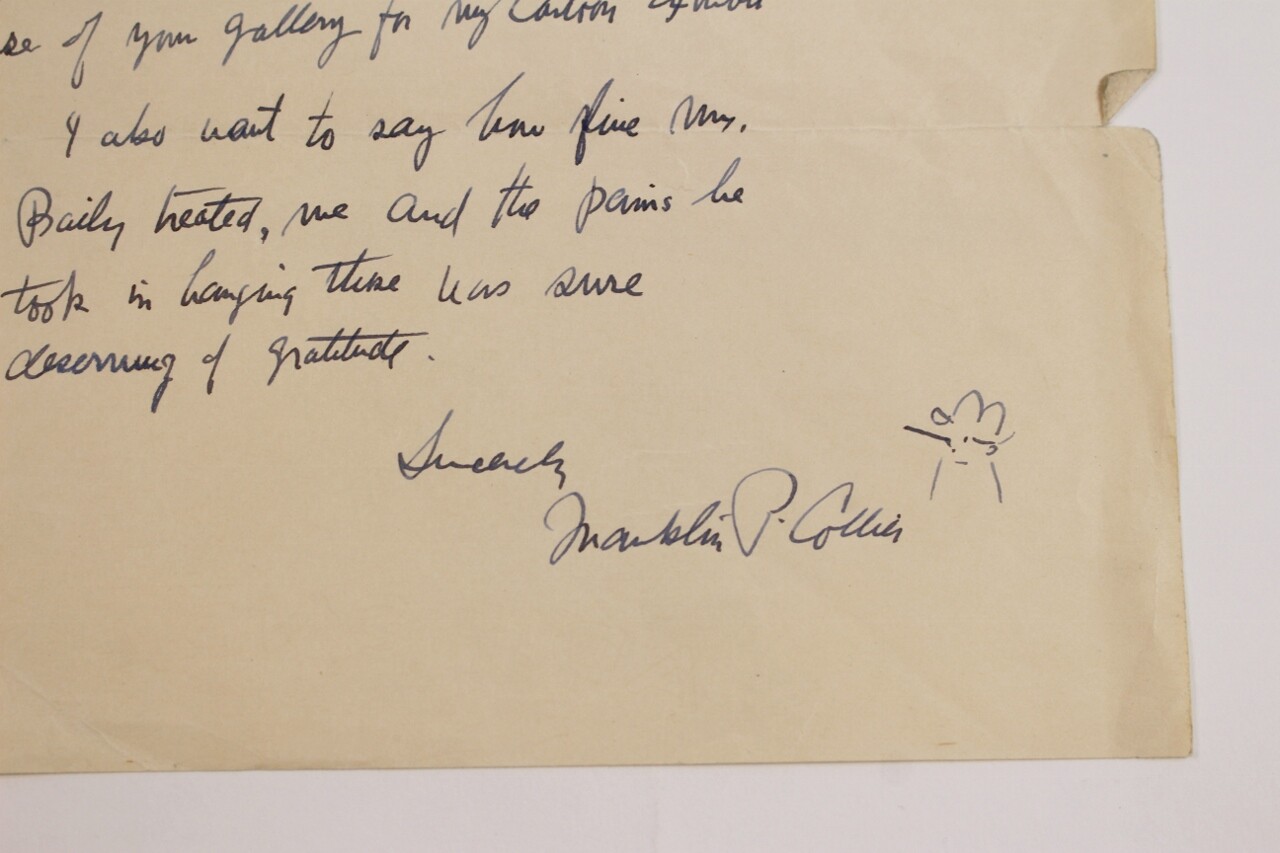 se of your gallery for my cartoon exhibit
I also want to say how fine Mr.
Baily treated, me and the pains he
took in hanging these was sure
deserving of gratitude.
Sincerely
Franklin P. Collier